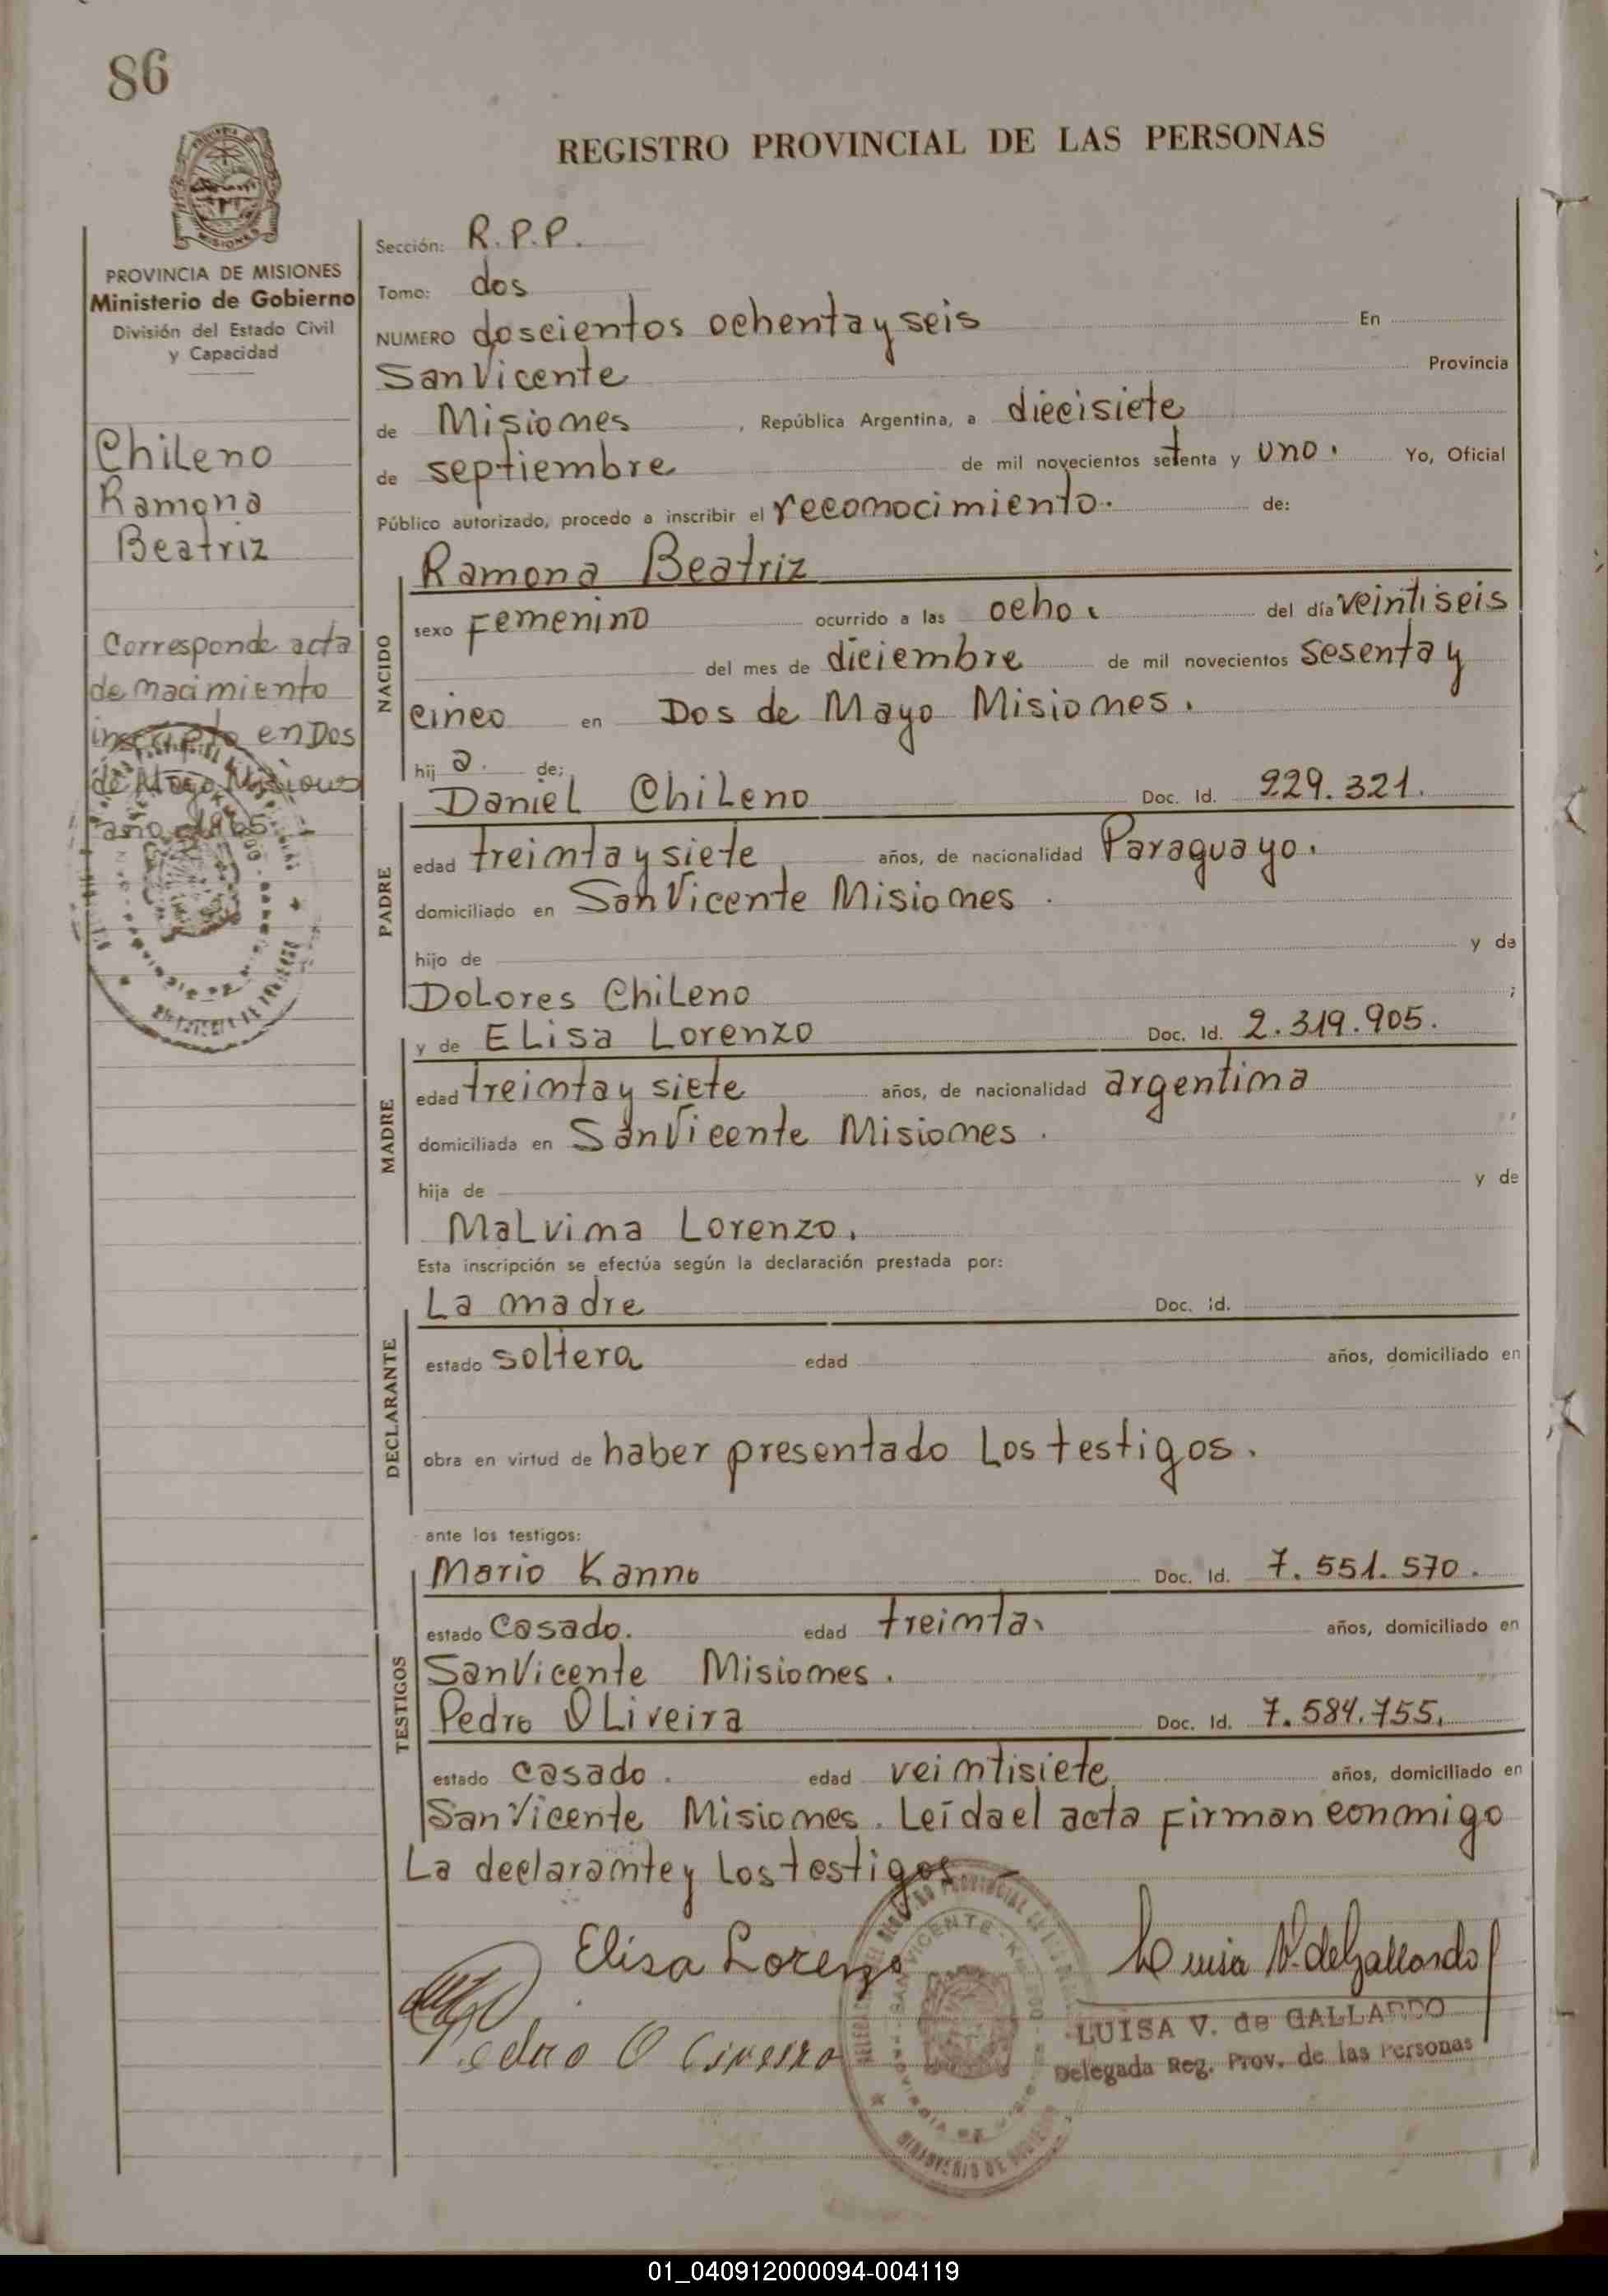 86
REGISTRO PROVINCIAL DE LAS PERSONAS
MISIONES
PROVINCIA DE MISIONES
Ministerio de Gobierno
División del Estado Civil
y Capacidad
Chileno
Ramona
Beatriz
Corresponde acta
de nacimiento
inscripto en Dos
de Mayo Misiones
año 1965
Sección: R.P.P.
Tomo: dos
NUMERO doscientos ochenta y seis En
San Vicente Provincia
de Misiones, República Argentina, a diecisiete
de septiembre de mil novecientos setenta y uno. Yo, Oficial
Público autorizado, procedo a inscribir el reconocimiento. de:
NACIDO
Ramona Beatriz
sexo Femenino ocurrido a las ocho. del día veintiseis
del mes de diciembre de mil novecientos sesenta y
cinco en Dos de Mayo Misiones.
hij a. de:
PADRE
Daniel Chileno Doc. Id. 929.321.
edad treinta y siete años, de nacionalidad Paraguayo.
domiciliado en San Vicente Misiones.
hijo de y de
Dolores Chileno ;
MADRE
y de Elisa Lorenzo Doc. Id. 2.319.905.
edad treinta y siete años, de nacionalidad argentina
domiciliada en San Vicente Misiones.
hija de y de
Malvina Lorenzo.
Esta inscripción se efectúa según la declaración prestada por:
DECLARANTE
La madre Doc. Id.
estado soltera edad años, domiciliado en
obra en virtud de haber presentado Los testigos.
ante los testigos:
TESTIGOS
Mario Kanno Doc. Id. 7.551.570.
estado Casado. edad treinta años, domiciliado en
San Vicente Misiones.
Pedro Oliveira Doc. Id. 7.584.755.
estado casado. edad veintisiete años, domiciliado en
San Vicente Misiones. Leída el acta firman conmigo
La declarante y los testigos
Elisa Lorenzo
Luisa V. de Gallardo
LUISA V. de GALLARDO
Delegada Reg. Prov. de las Personas
Pedro Oliveira
01_040912000094-004119